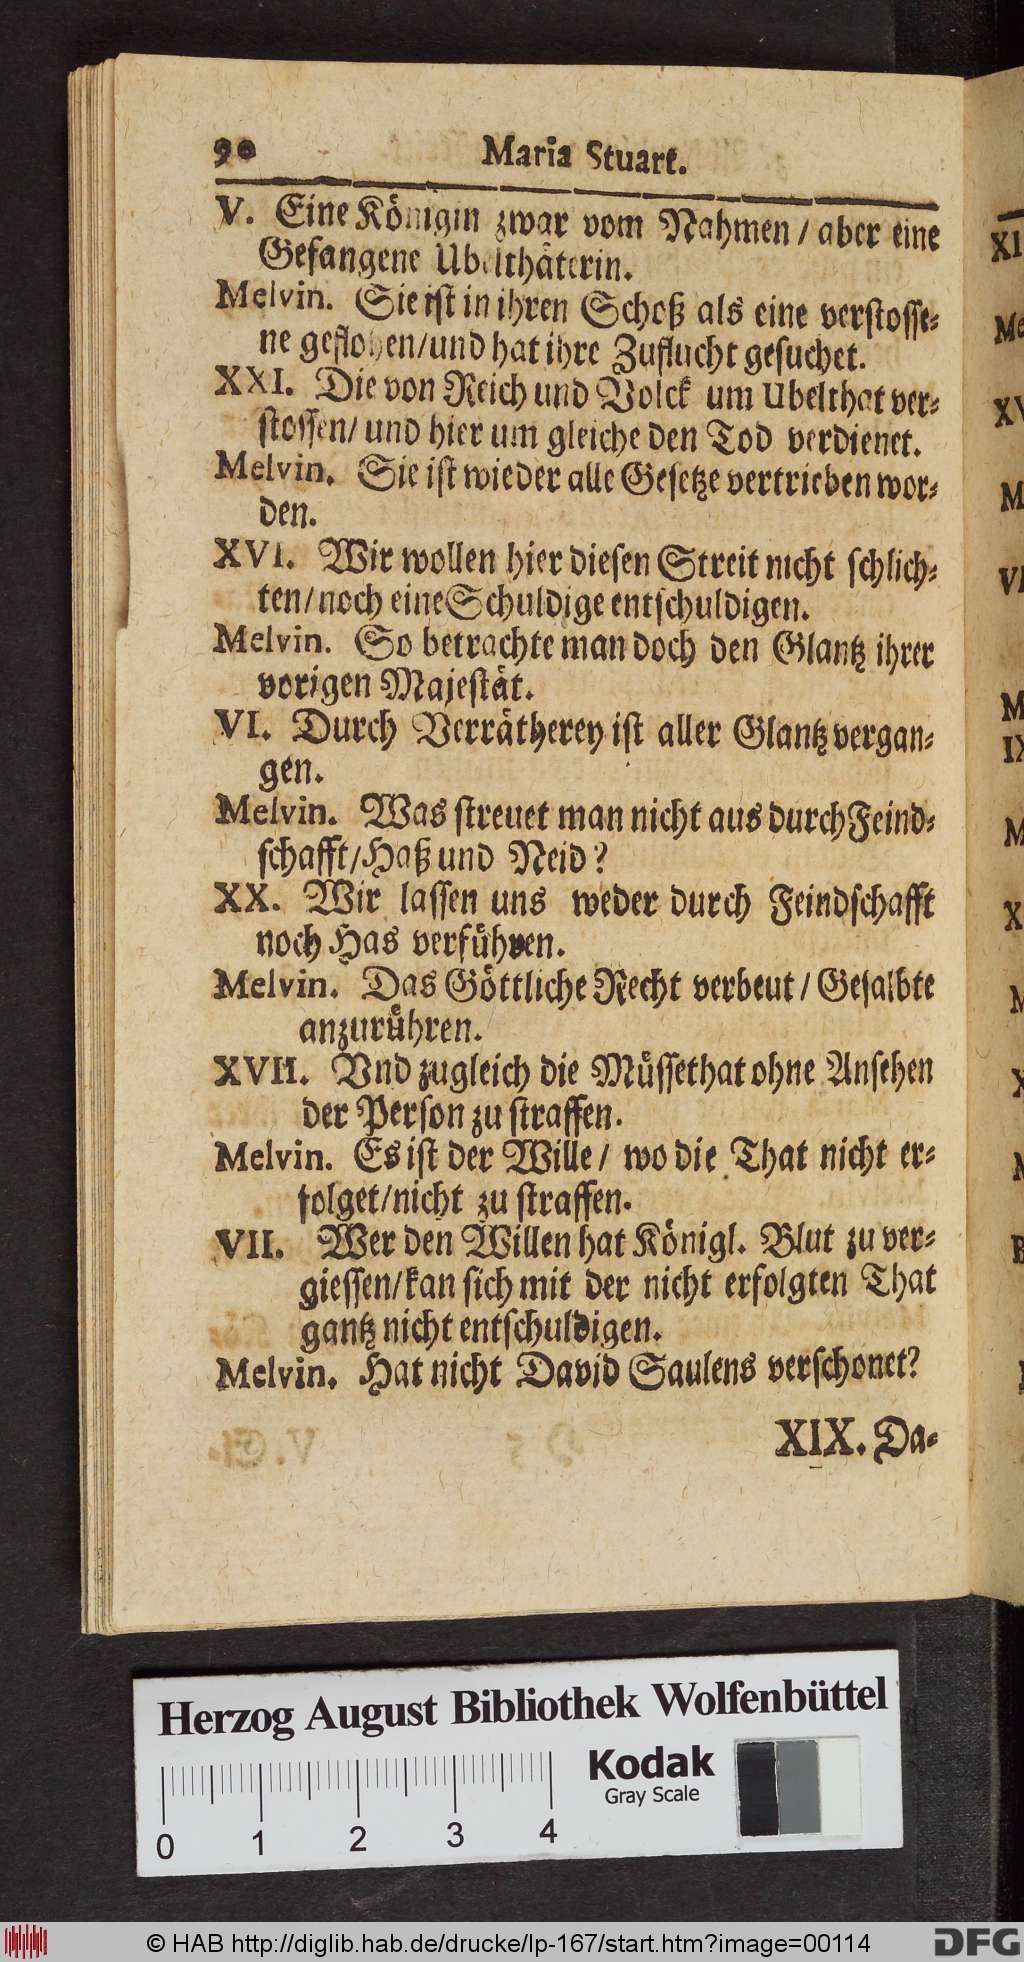 90 Maria Stuart.
V. Eine Königin zwar vom Nahmen / aber eine
Gefangene Ubelthäterin.
Melvin. Sie ist in ihren Schoß als eine verstosse-
ne geflohen/und hat ihre Zuflucht gesuchet.
XXI. Die von Reich und Volck um Ubelthat ver-
stossen/ und hier um gleiche den Tod verdienet.
Melvin. Sie ist wieder alle Gesetze vertrieben wor-
den.
XVI. Wir wollen hier diesen Streit nicht schlich-
ten/noch eine Schuldige entschuldigen.
Melvin. So betrachte man doch den Glantz ihrer
vorigen Majestät.
VI. Durch Verrätherey ist aller Glantz vergan-
gen.
Melvin. Was streuet man nicht aus durch Feind-
schafft/Haß und Neid?
XX. Wir lassen uns weder durch Feindschafft
noch Has verführen.
Melvin. Das Göttliche Recht verbeut / Gesalbte
anzurühren.
XVII. Vnd zugleich die Müssethat ohne Ansehen
der Person zu straffen.
Melvin. Es ist der Wille / wo die That nicht er-
folget/nicht zu straffen.
VII. Wer den Willen hat Königl. Blut zu ver-
giessen/kan sich mit der nicht erfolgten That
gantz nicht entschuldigen.
Melvin. Hat nicht David Saulens verschonet?
XIX. Da-
Herzog August Bibliothek Wolfenbüttel
Kodak
Gray Scale
0 1 2 3 4
© HAB http://diglib.hab.de/drucke/lp-167/start.htm?image=00114
DFG